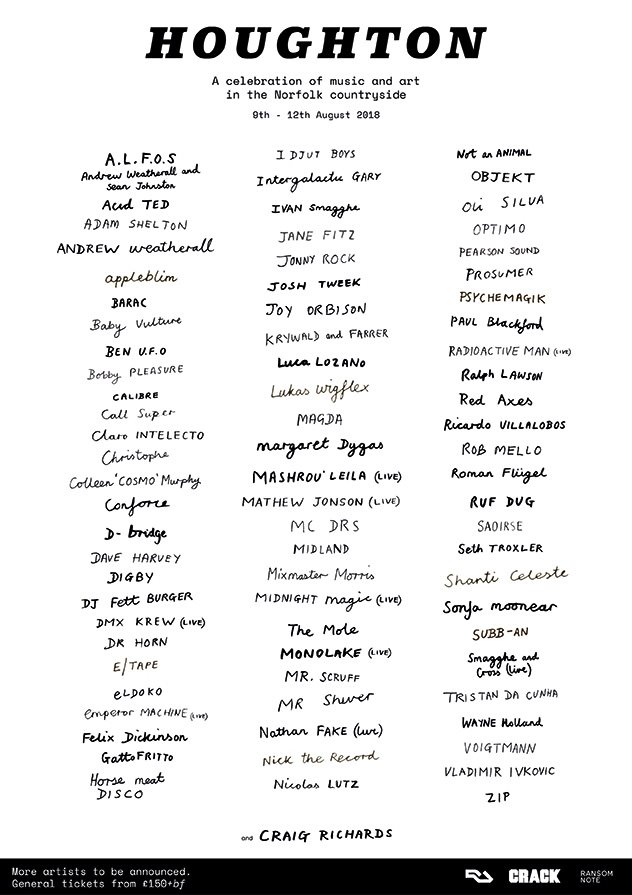 HOUGHTON
A celebration of music and art
in the Norfolk countryside
9th - 12th August 2018
A.L.F.O.S
Andrew Weatherall and
Sean Johnston
Acid TED
ADAM SHELTON
ANDREW weatherall
appleblim
BARAC
Baby Vulture
BEN U.F.O
Bobby PLEASURE
CALIBRE
Call Super
Claro INTELECTO
Christophe
Colleen 'COSMO' Murphy
Conforce
D-bridge
DAVE HARVEY
DIGBY
DJ Fett BURGER
DMX KREW (LIVE)
DR HORN
E/TAPE
eLDOKO
Emperor MACHINE (LIVE)
Felix Dickinson
Gatto FRITTO
Horse meat
DISCO
I DJUT BOYS
Intergalactic GARY
IVAN Smagghe
JANE FITZ
JONNY ROCK
JOSH TWEEK
JOY ORBISON
KRYWALD and FARRER
Luca LOZANO
Lukas wigflex
MAGDA
margaret Dygas
MASHROU' LEILA (LIVE)
MATHEW JONSON (LIVE)
MC DRS
MIDLAND
Mixmaster Morris
MIDNIGHT magic (LIVE)
The Mole
MONOLAKE (LIVE)
MR. SCRUFF
MR Shiver
Nathan FAKE (Live)
Nick the Record
Nicolas LUTZ
Not an ANIMAL
OBJEKT
Oli SILVA
OPTIMO
PEARSON SOUND
PROSUMER
PSYCHEMAGIK
PAUL Blackford
RADIOACTIVE MAN (LIVE)
Ralph LAWSON
Red Axes
Ricardo VILLALOBOS
ROB MELLO
Roman Flügel
RUF DUG
SAOIRSE
Seth TROXLER
Shanti Celeste
Sonja moonear
SUBB-AN
Smagghe and
Cross (live)
TRISTAN DA CUNHA
WAYNE Holland
VOIGTMANN
VLADIMIR IVKOVIC
ZIP
and CRAIG RICHARDS
More artists to be announced.
General tickets from £150+bf
RA
CRACK
RANSOM
NOTE